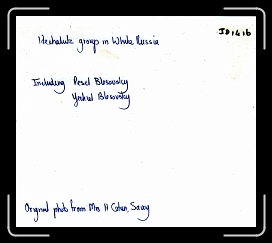 JD1416
Hechalutz group in White Russia
Including Pesel Blosovsky
Yekhiel Blosovsky
Original photo from Mrs H Cohen, Savoy